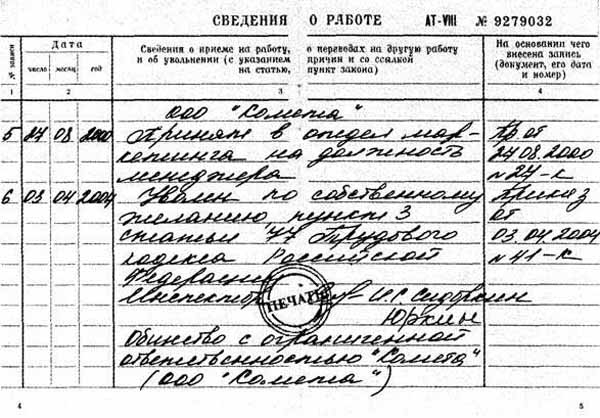 СВЕДЕНИЯ О РАБОТЕ АТ-VIII № 9279032
№ записи
Дата
число месяц год
Сведения о приеме на работу, о переводах на другую работу
и об увольнении (с указанием причин и со ссылкой
на статью, пункт закона)
На основании чего
внесена запись
(документ, его дата
и номер)
1 2 3 4
ООО "Комета"
5 27 08 2000 Принят в отдел мар- Пр. от
кетинга на должность 27.08.2000
менеджера №27-к
6 03 04 2004 Уволен по собственному Приказ
желанию, пункт 3 от
статьи 77 Трудового 03.04.2004
кодекса Российской №41-к
Федерации
Инспектор И.С. Сидоркин
ПЕЧАТЬ
Юркин
Общество с ограниченной
ответственностью "Комета"
(ООО "Комета")
4 5